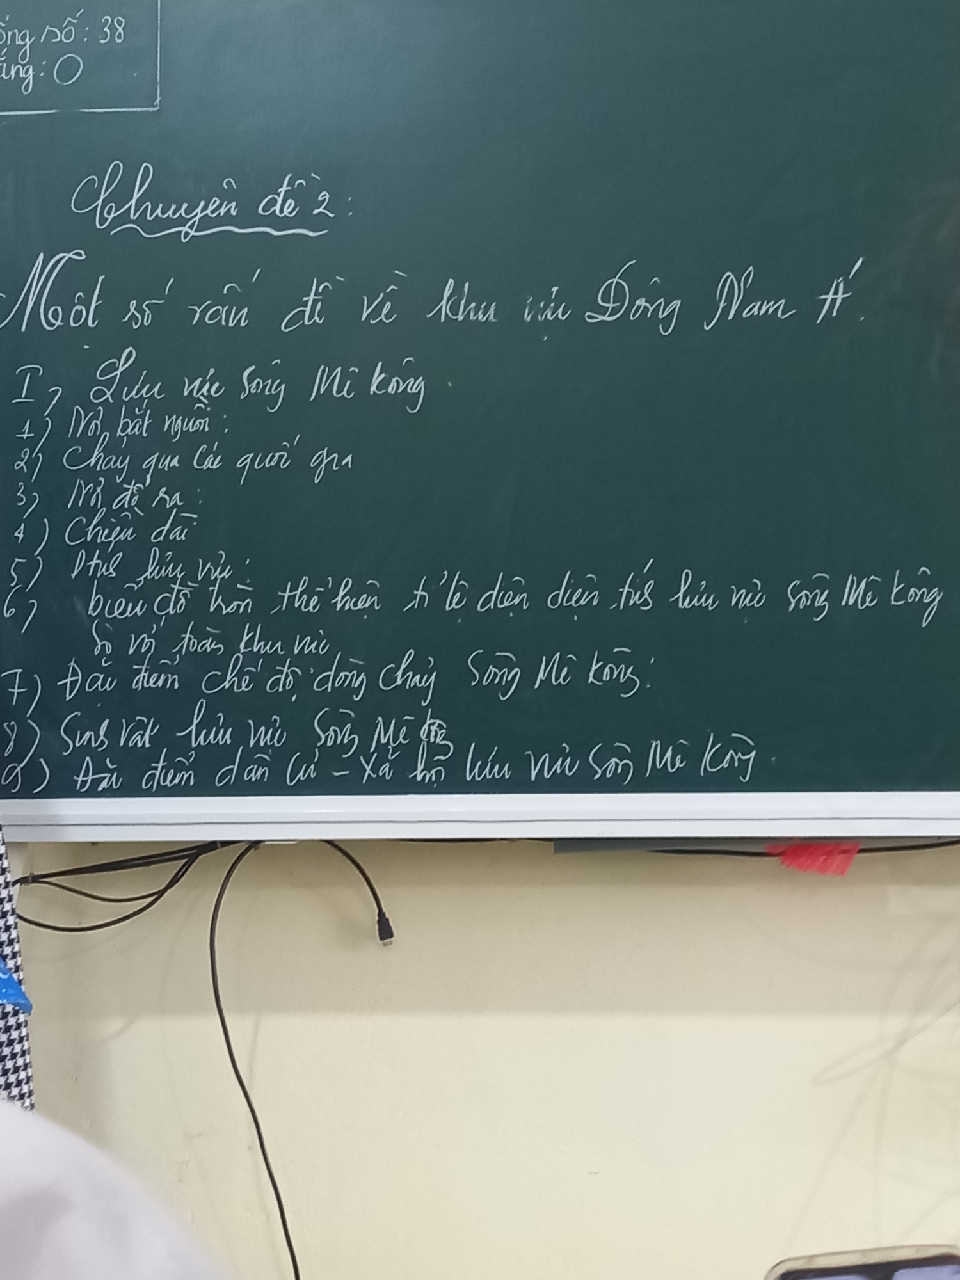 ổng số: 38
ắng: 0
Chuyên đề 2:
Một số vấn đề về khu vực Đông Nam Á.
I) Lưu vực sông Mê Kông.
1) Nơi bắt nguồn:
2) Chảy qua các quốc gia
3) Nơi đổ ra:
4) Chiều dài
5) Dtích lưu vực:
6) biểu đồ tròn thể hiện tỉ lệ diện diện tích lưu vực sông Mê Kông
So với toàn khu vực
7) Đặc điểm chế độ dòng chảy Sông Mê Kông:
8) Sinh vật lưu vực Sông Mê Kông
9) Đặc điểm dân cư - Xã hội lưu vực Sông Mê Kông.